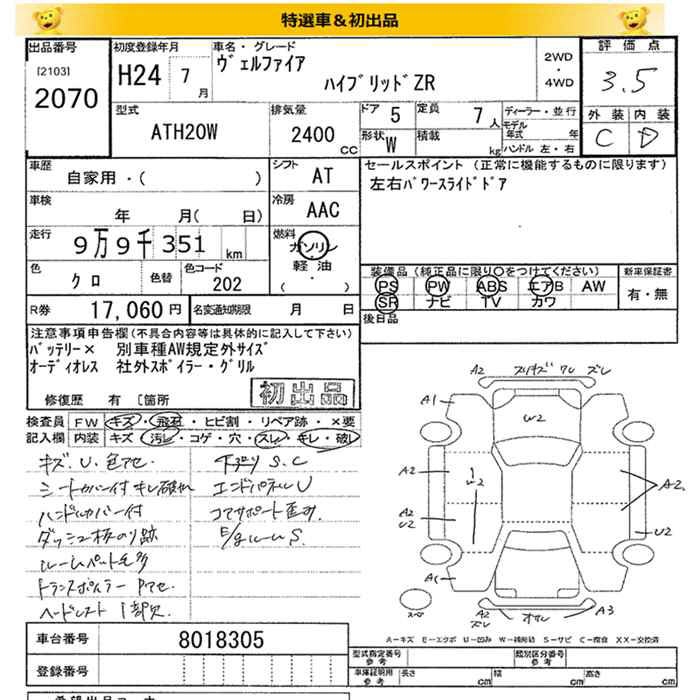 特選車＆初出品
出品番号
[2103]
2070
初度登録年月
H24 7月
車名・グレード
ヴェルファイア
ハイブリッドZR
2WD
・
4WD
評価点
3.5
外装 内装
C D
型式
ATH20W
排気量
2400 CC
ドア 5
形状 W
定員 7人
積載 kg
ディーラー・並行
モデル年式 年
ハンドル 左・右
車歴
自家用・( )
シフト
AT
セールスポイント (正常に機能するものに限ります)
左右パワースライドドア
車検
年 月( 日)
冷房
AAC
走行
9万9千351km
燃料
ガソリン
・
軽油
( )
色
クロ
色替
色コード
202
装備品(純正品に限り○をつけてください)
PS PW ABS エアB AW
SR ナビ TV カワ
新車保証書
有・無
R券
17,060円
名変通知期限 月 日
後日品
注意事項申告欄(不具合内容等は具体的に記入して下さい)
バッテリー× 別車種AW規定外サイズ
オーディオレス 社外スポイラー・グリル
修復歴 有 [箇所
初出品
検査員記入欄
FW キズ・飛石・ヒビ割・リペア跡・×要
内装 キズ・汚レ・コゲ・穴・スレ・キレ・破レ
キズ.U.色アセ.
シートカバー付 キレ破れ
ハンドルカバー付
ダッシュ板のり跡
ルームパート毛多
ヘードレスト 1部欠
下廻りS.C
エンドパネルU
コアサポート歪み.
E/gルームS.
A2 スリキズ ワレ ズレ
A1 A1
W2
A2 W2 A2
A2
U2
U2
A1
A2 ズレ オサレ A3
A-キズ E-エクボ U-凹み W-補修跡 S-サビ C-腐食 XX-交換済
車台番号 8018305
登録番号
型式指定番号 参考
類別区分番号 参考
車庫証明用 参考
長さ cm 幅 cm 高さ cm